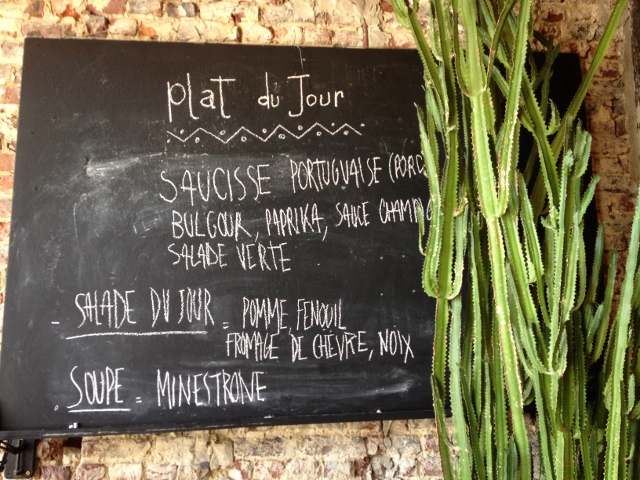 plat du Jour
SAUCISSE PORTUGUAISE (PORC
BULGOUR, PAPRIKA, SAUCE
SALADE VERTE
- SALADE DU JOUR = POMME, FENOUIL
FROMAGE DE CHÈVRE, NOIX
. SOUPE = MINESTRONE